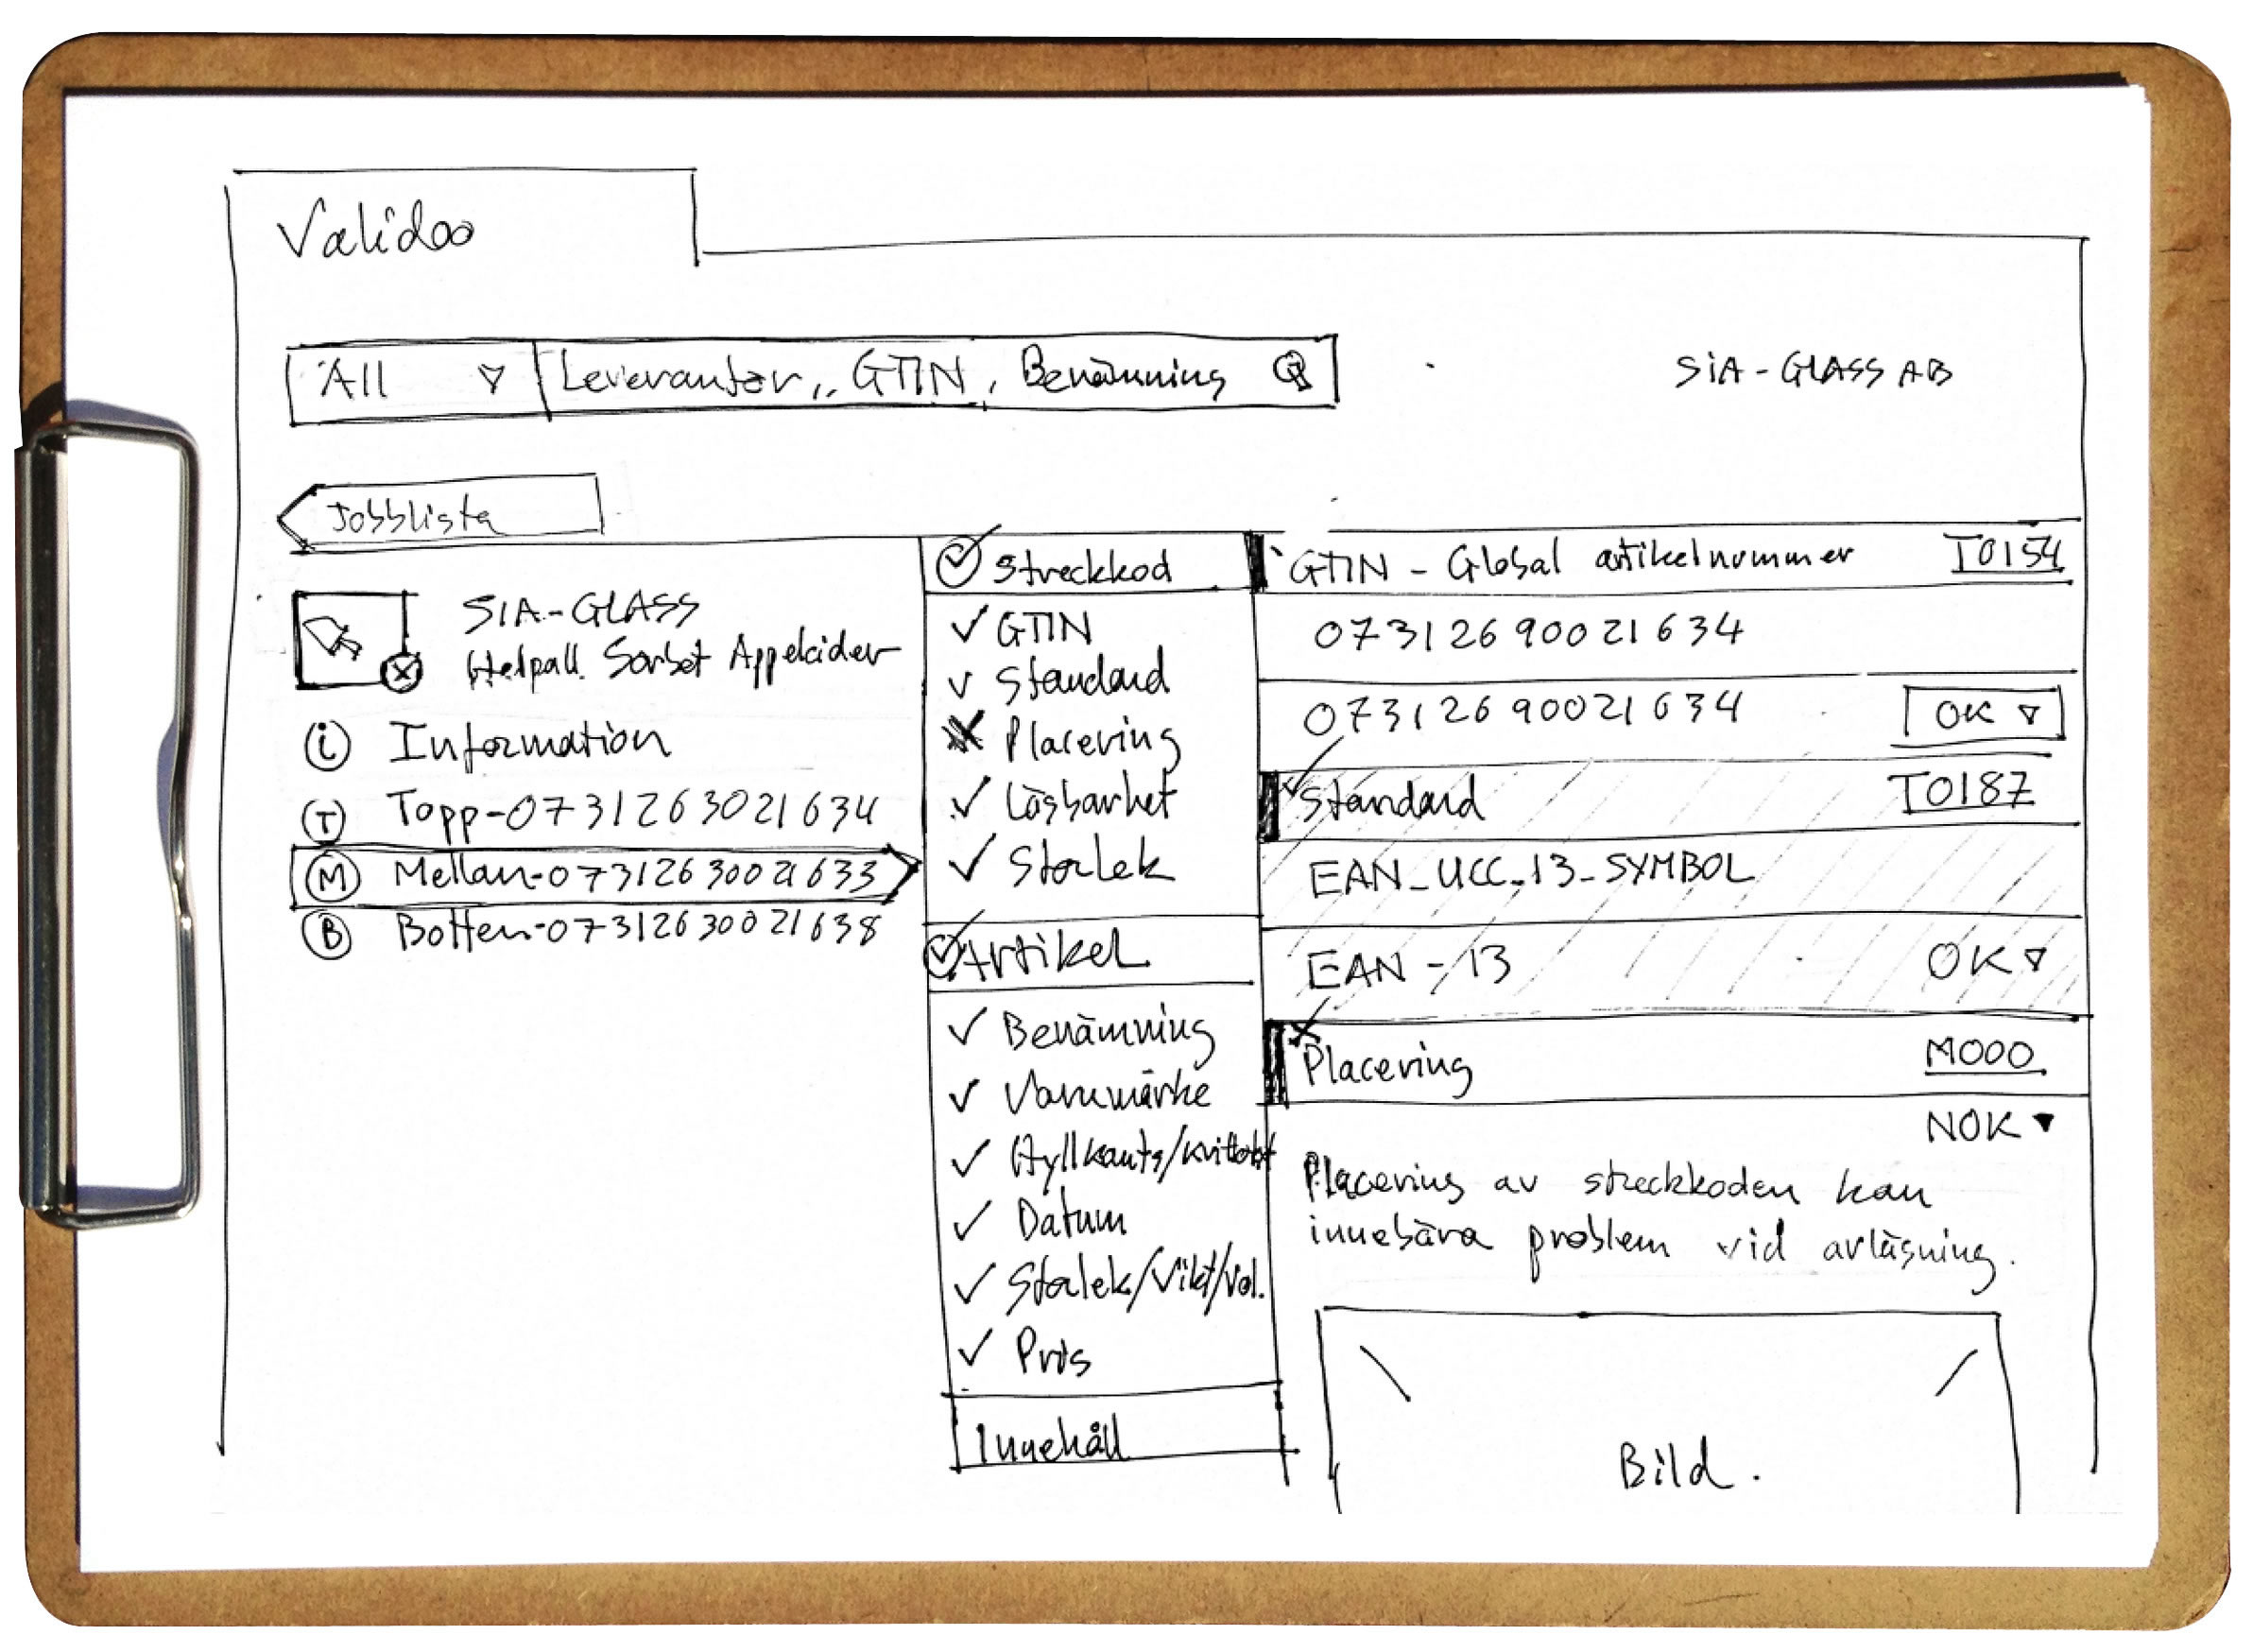 Validoo
All Leverantör,, GTIN, Benämning
SIA-GLASS AB
Jobblista
SIA-GLASS
Helpall Sorbet Appelcider
i Information
T Topp-0731263021634
M Mellan-07312630021633
B Botten-07312630021638
Streckkod
GTIN
Standard
Placering
Läsbarhet
Storlek
Artikel
Benämning
Varumärke
Hyllkants/
Datum
Storlek/Vikt/Vol.
Pris
Innehåll
GTIN - Global artikelnummer T0154
07312690021634
07312690021634 OK
Standard T0187
EAN_UCC_13_SYMBOL
EAN-13 OK
Placering M000
NOK
Placering av streckkoden kan
innebära problem vid avläsning.
Bild.